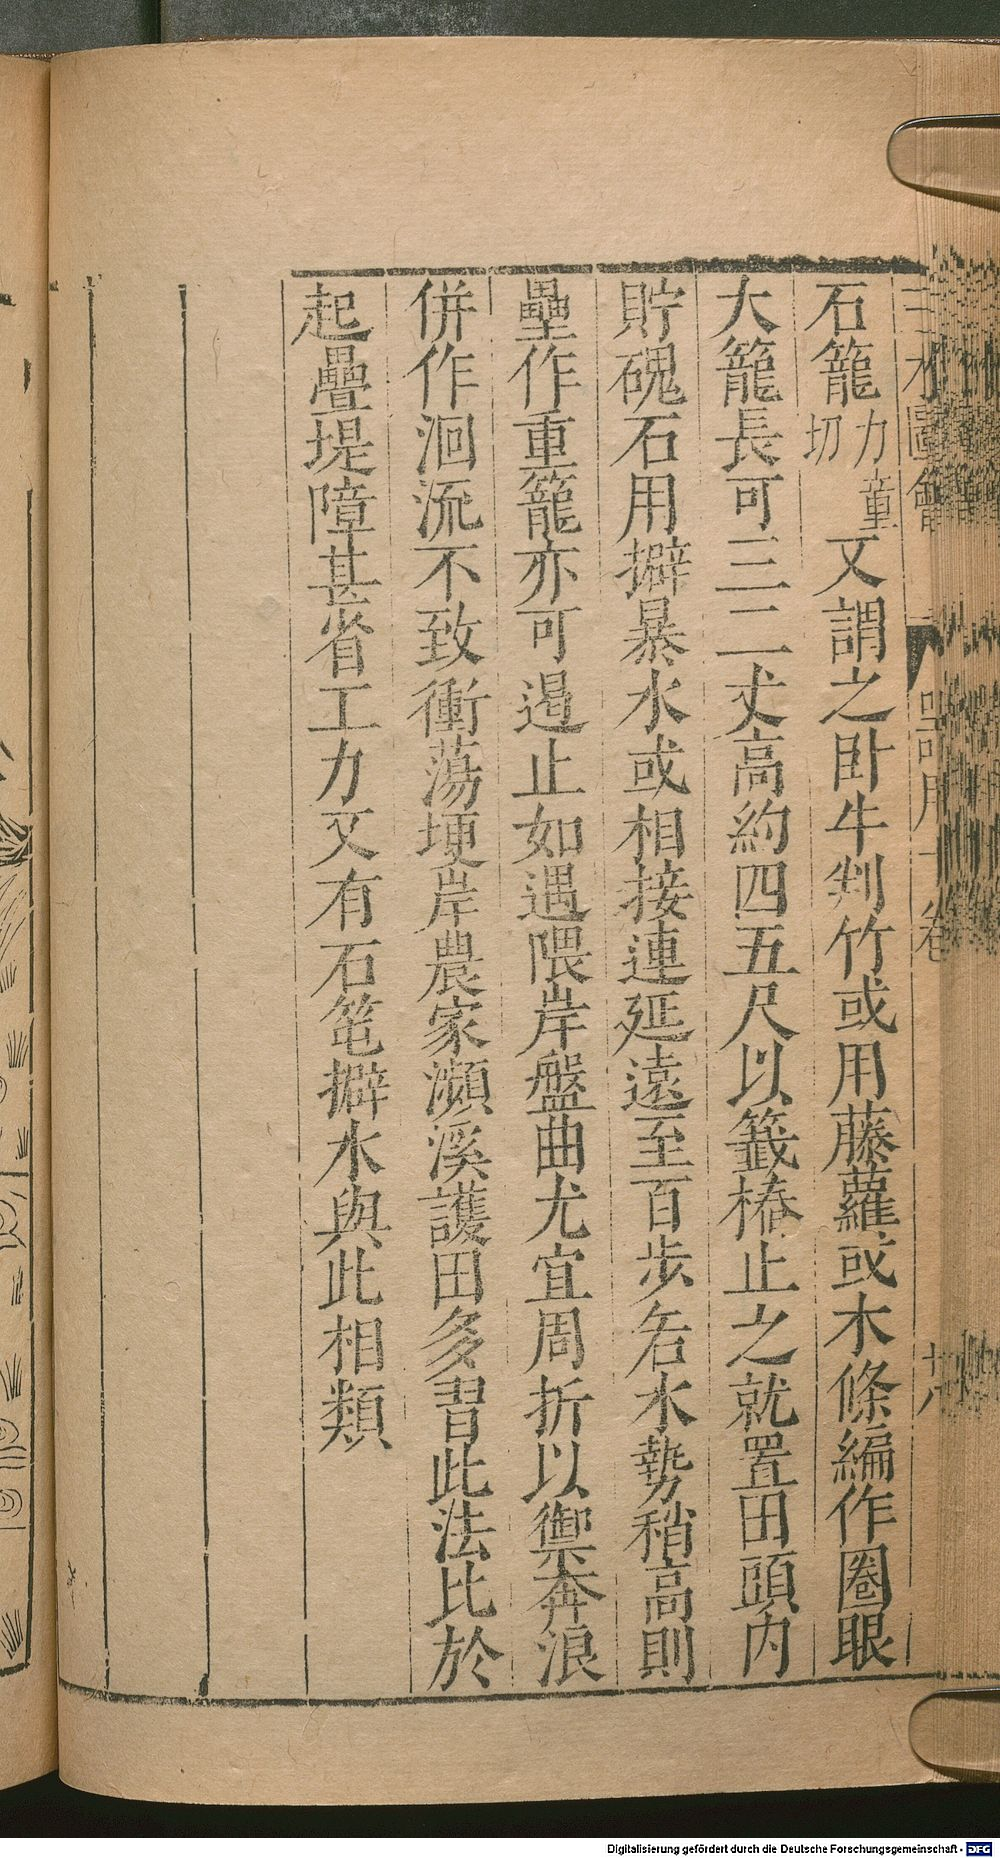 三才圖會 器用十卷 十八
石籠力童切又謂之卧牛判竹或用藤蘿或木條編作圈眼
大籠長可三二丈高約四五尺以籤樁止之就置田頭内
貯磈石用擗暴水或相接連延遠至百步若水勢稍高則
壘作重籠亦可遏止如遇隈岸盤曲尤宜周折以禦奔浪
併作洄流不致衝蕩埂岸農家瀕溪護田多習此法比於
起疊堤障甚省工力又有石篭擗水與此相類
Digitalisierung gefördert durch die Deutsche Forschungsgemeinschaft - DFG